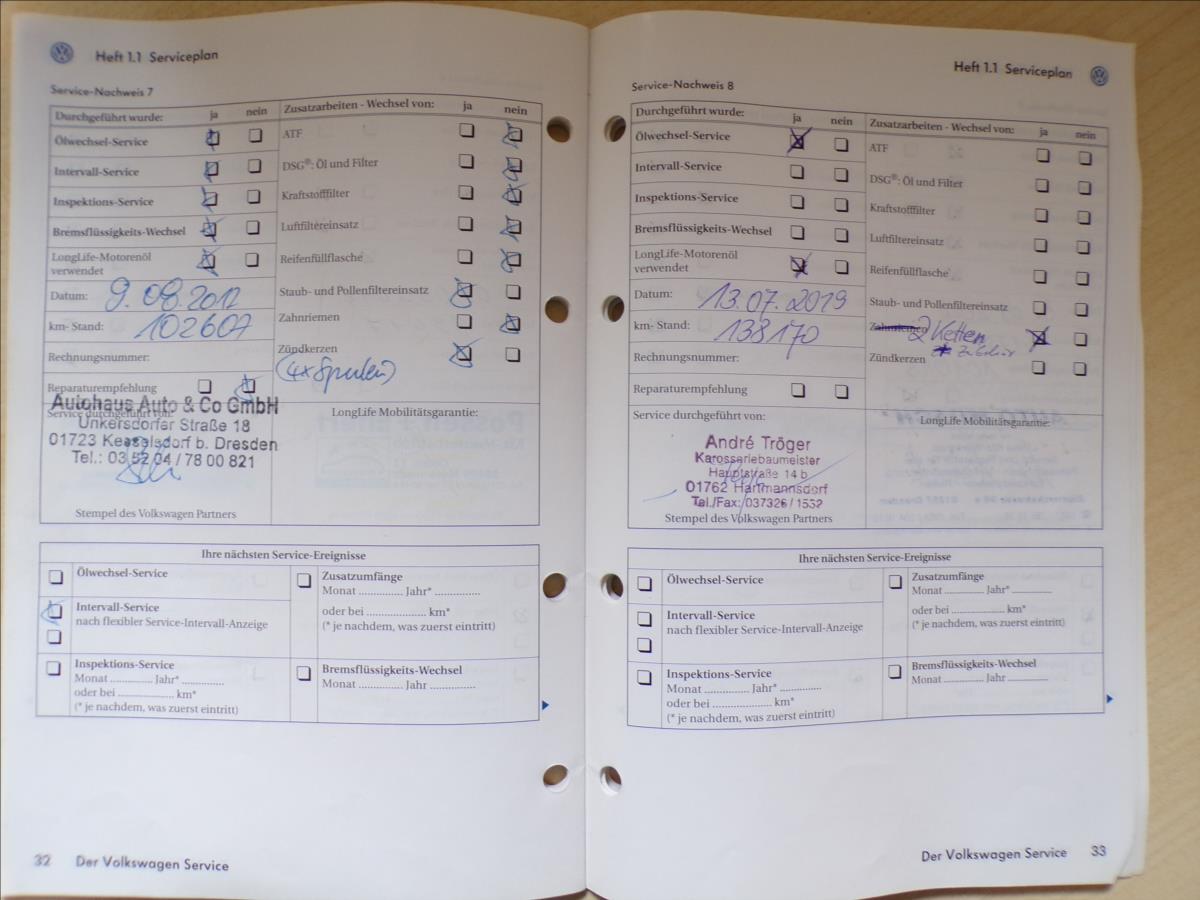 Heft 1.1 Serviceplan
Service-Nachweis 7
Durchgeführt wurde: ja nein
Ölwechsel-Service
Intervall-Service
Inspektions-Service
Bremsflüssigkeits-Wechsel
LongLife-Motorenöl
verwendet
Datum: 9.08.2012
km- Stand: 102607
Rechnungsnummer:
Reparaturempfehlung
Service durchgeführt von:
Autohaus Auto & Co GmbH
Unkersdorfer Straße 18
01723 Kesselsdorf b. Dresden
Tel.: 03 52 04 / 78 00 821
Stempel des Volkswagen Partners
Zusatzarbeiten - Wechsel von: ja nein
ATF
DSG®: Öl und Filter
Kraftstofffilter
Luftfiltereinsatz
Reifenfüllflasche
Staub- und Pollenfiltereinsatz
Zahnriemen
Zündkerzen
(4x Spulen)
LongLife Mobilitätsgarantie:
Ihre nächsten Service-Ereignisse
Ölwechsel-Service
Intervall-Service
nach flexibler Service-Intervall-Anzeige
Inspektions-Service
Monat ............. Jahr* .............
oder bei .................... km*
(* je nachdem, was zuerst eintritt)
Zusatzumfänge
Monat ............. Jahr* ..............
oder bei .................... km*
(* je nachdem, was zuerst eintritt)
Bremsflüssigkeits-Wechsel
Monat ............. Jahr ..............
32 Der Volkswagen Service
Heft 1.1 Serviceplan
Service-Nachweis 8
Durchgeführt wurde: ja nein
Ölwechsel-Service
Intervall-Service
Inspektions-Service
Bremsflüssigkeits-Wechsel
LongLife-Motorenöl
verwendet
Datum: 13.07.2019
km- Stand: 138170
Rechnungsnummer:
Reparaturempfehlung
Service durchgeführt von:
André Tröger
Karosseriebaumeister
Hauptstraße 14 b
01762 Hartmannsdorf
Tel./Fax: 037326 / 1532
Stempel des Volkswagen Partners
Zusatzarbeiten - Wechsel von: ja nein
ATF
DSG®: Öl und Filter
Kraftstofffilter
Luftfiltereinsatz
Reifenfüllflasche
Staub- und Pollenfiltereinsatz
Zahnriemen 2 Ketten
Zündkerzen
LongLife Mobilitätsgarantie:
Ihre nächsten Service-Ereignisse
Ölwechsel-Service
Intervall-Service
nach flexibler Service-Intervall-Anzeige
Inspektions-Service
Monat ............. Jahr* .............
oder bei .................... km*
(* je nachdem, was zuerst eintritt)
Zusatzumfänge
Monat ............. Jahr* .............
oder bei .................... km*
(* je nachdem, was zuerst eintritt)
Bremsflüssigkeits-Wechsel
Monat ............. Jahr .............
Der Volkswagen Service 33